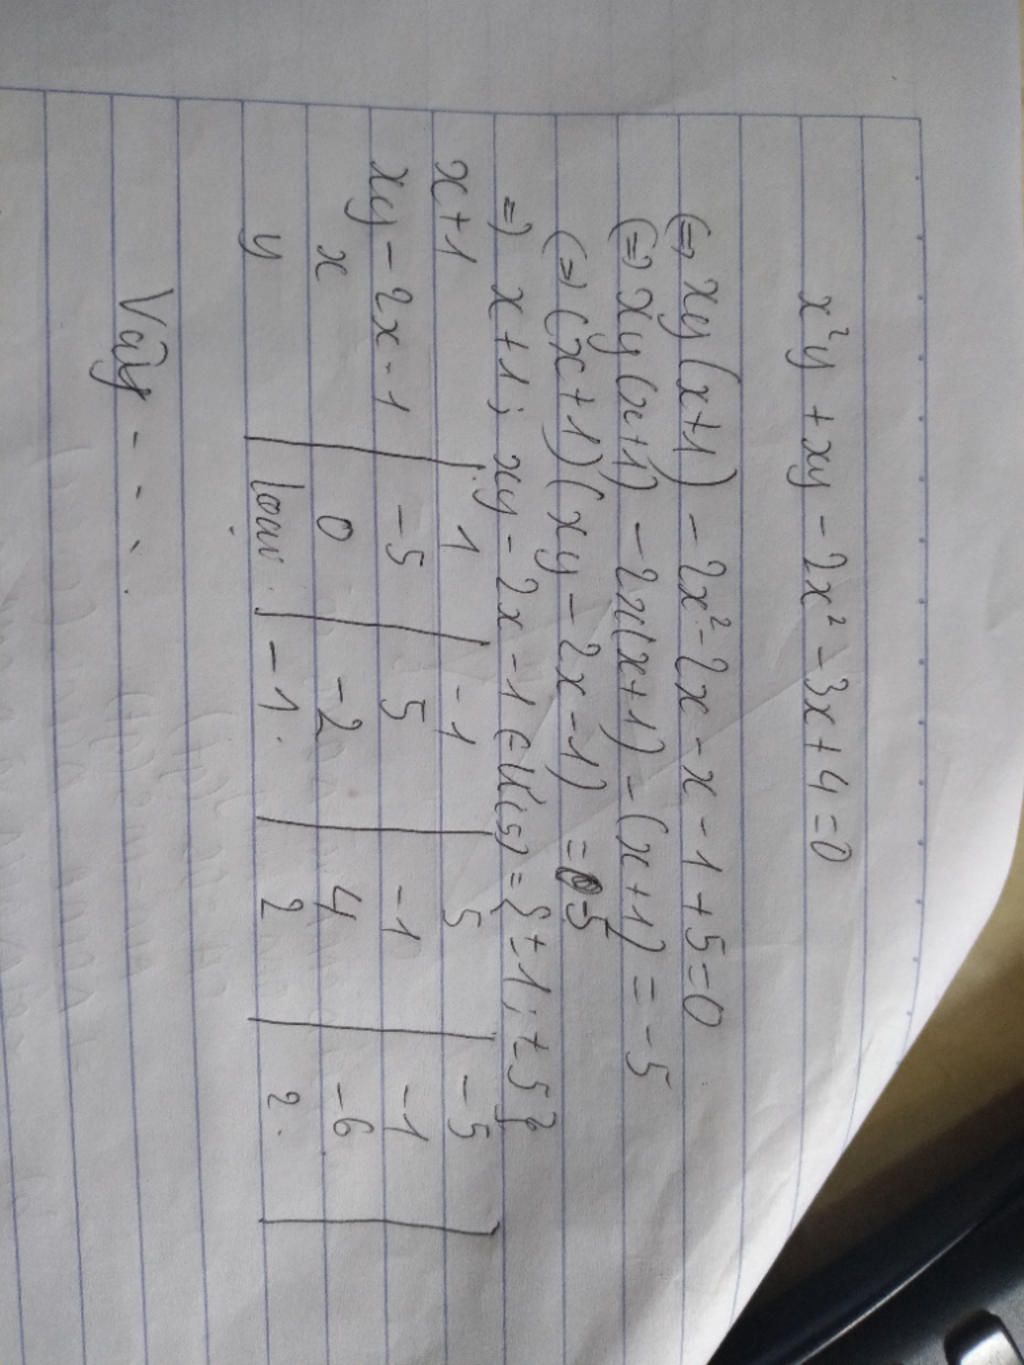 x²y + xy - 2x² - 3x + 4 = 0
(=) xy(x+1) - 2x² - 2x - x - 1 + 5 = 0
(=) xy(x+1) - 2x(x+1) - (x+1) = -5
(=) (x+1)(xy - 2x - 1) = -5
=) x+1; xy - 2x - 1 ∈ Ư(5) = {±1; ±5}
x+1 | 1 | -1 | 5 | -5
xy - 2x - 1 | -5 | 5 | -1 | -1
x | 0 | -2 | 4 | -6
y | loại | -1. | 2 | 2.
Vậy - - .